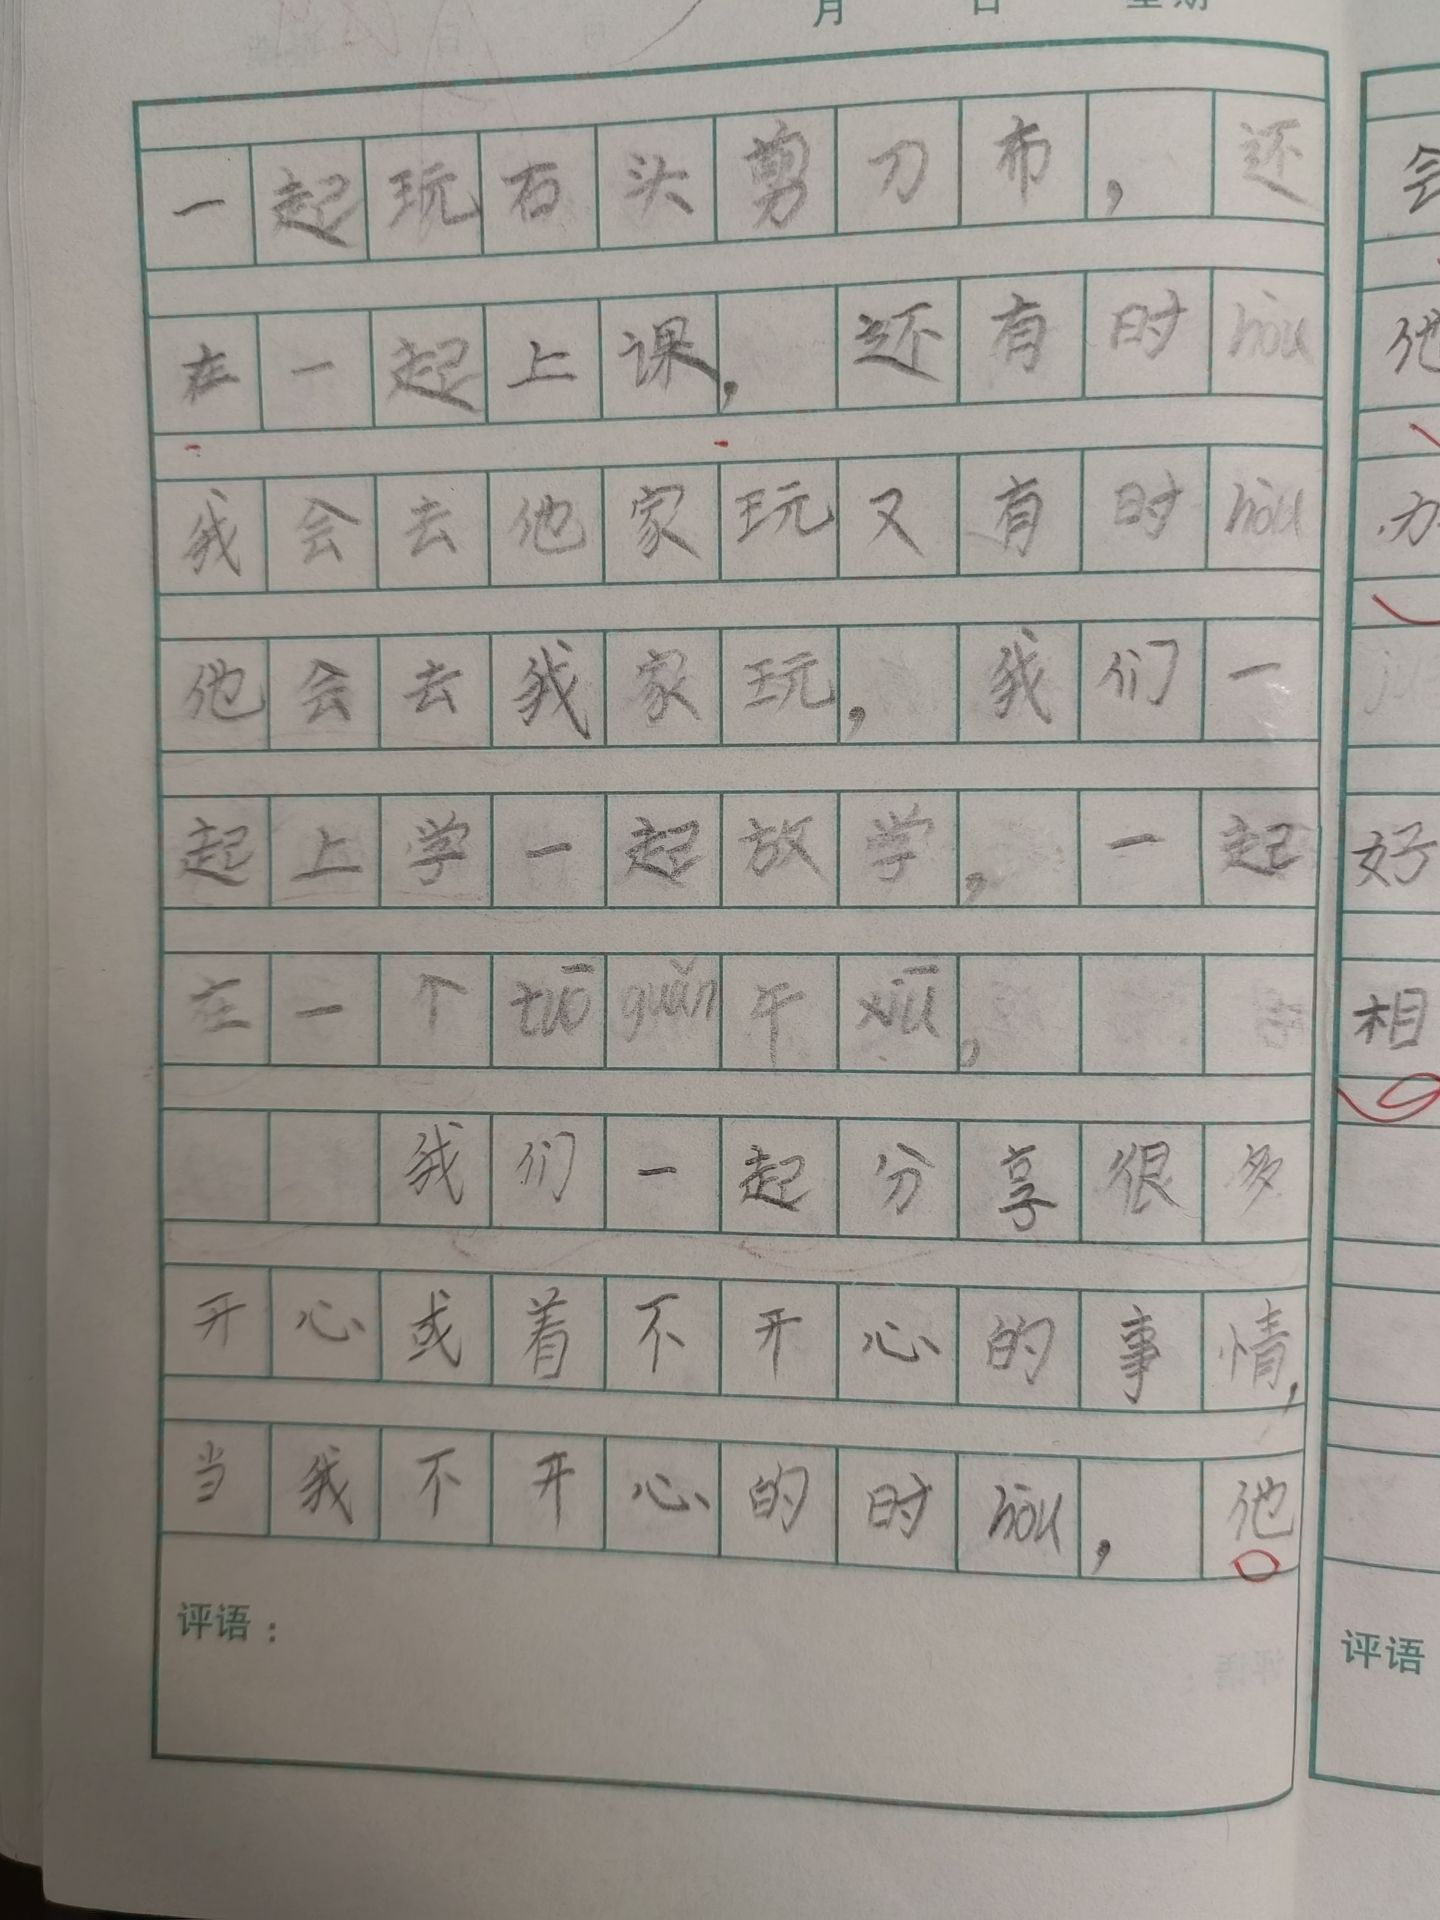 月 日 星期
一起玩石头剪刀布，还
在一起上课，还有时hòu
我会去他家玩又有时hòu
他会去我家玩，我们一
起上学一起放学，一起
在一个tuō guǎn午xiū，
我们一起分享很多
开心或着不开心的事情，
当我不开心的时hòu，他
评语：
会
他
办
好
相
评语